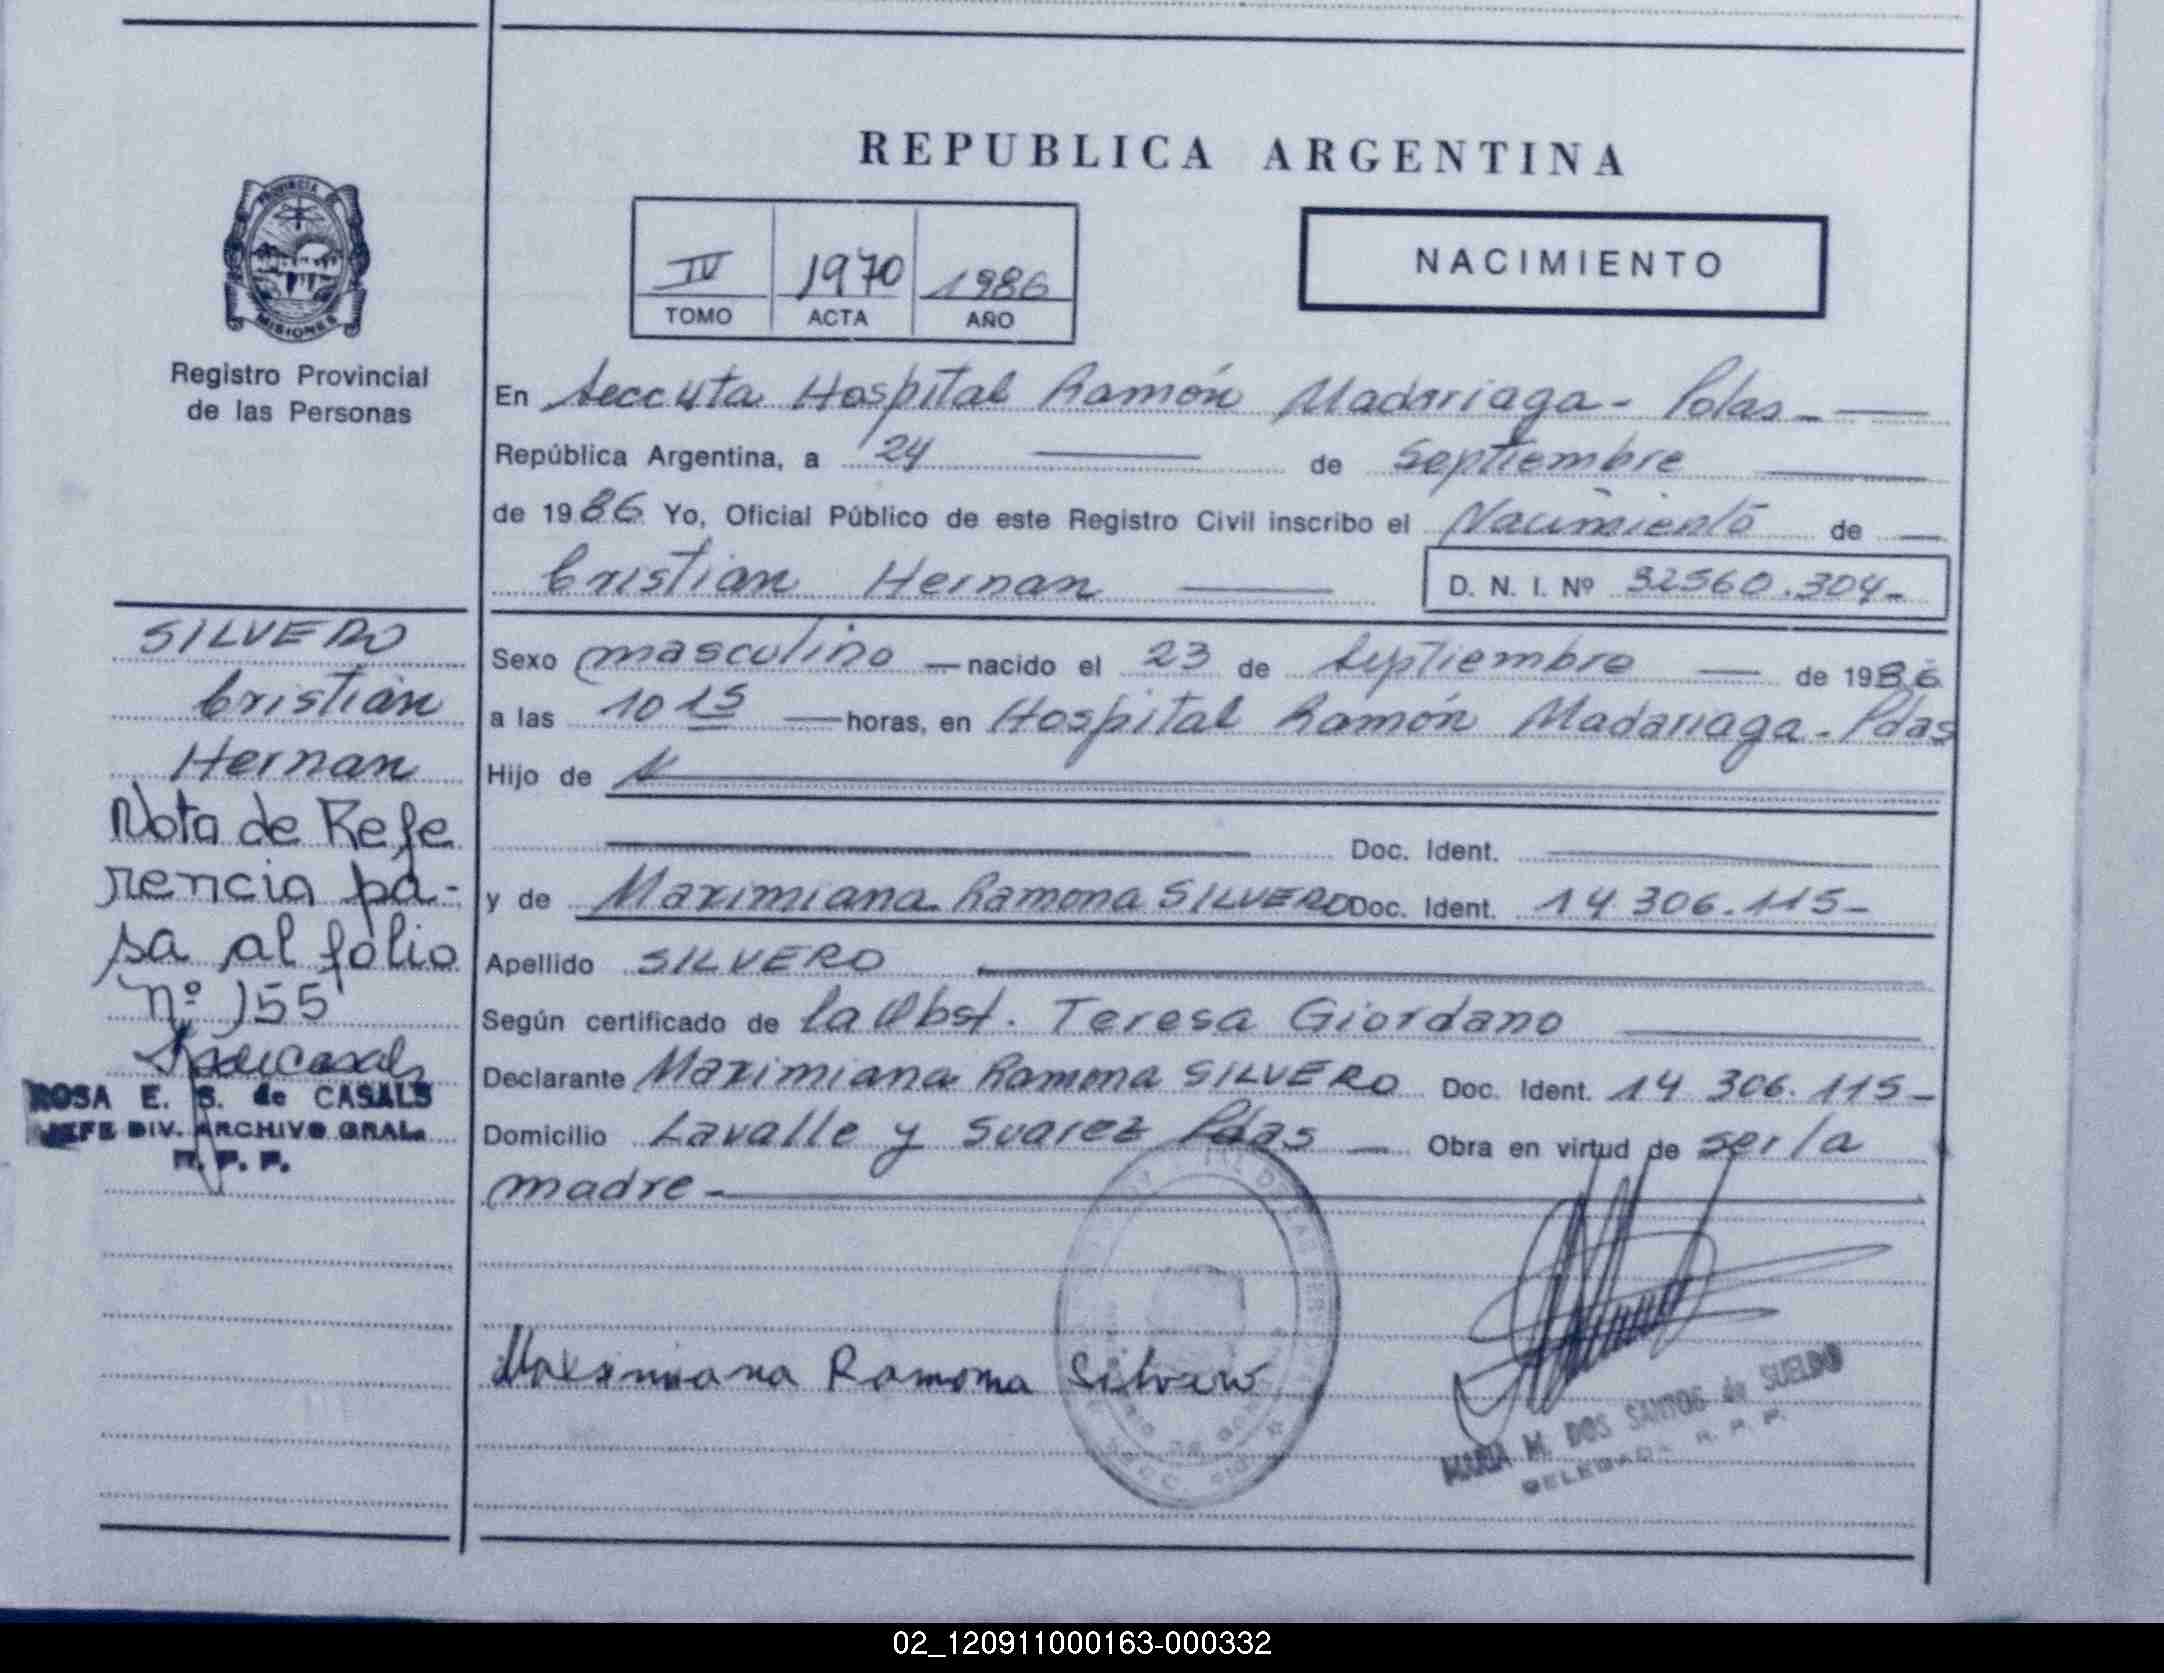 REPUBLICA ARGENTINA
PROVINCIA DE
MISIONES
Registro Provincial
de las Personas
IV 1970 1986
TOMO ACTA AÑO
NACIMIENTO
En Secc 4ta Hospital Ramón Madariaga - Pdas -
República Argentina, a 24 de Septiembre
de 1986 Yo, Oficial Público de este Registro Civil inscribo el Nacimiento de
Cristian Hernan D. N. I. Nº 32560.304-
SILVERO
Cristian
Hernan
Nota de Refe
rencia pa-
sa al folio
Nº 155
ROSA E. S. de CASALS
JEFE DIV. ARCHIVO GRAL.
R. P. P.
Sexo masculino nacido el 23 de Septiembre de 1986
a las 10 15 horas, en Hospital Ramón Madariaga - Pdas
Hijo de
Doc. Ident.
y de Maximiana Ramona SILVERO Doc. Ident. 14.306.115-
Apellido SILVERO
Según certificado de la Obst. Teresa Giordano
Declarante Maximiana Ramona SILVERO Doc. Ident. 14 306.115-
Domicilio Lavalle y Suarez Pdas Obra en virtud de ser la
madre -
Maxsimiana Ramona Silvero
MARIA M. DOS SANTOS de SUELDO
DELEGADA R. P. P.
02_120911000163-000332